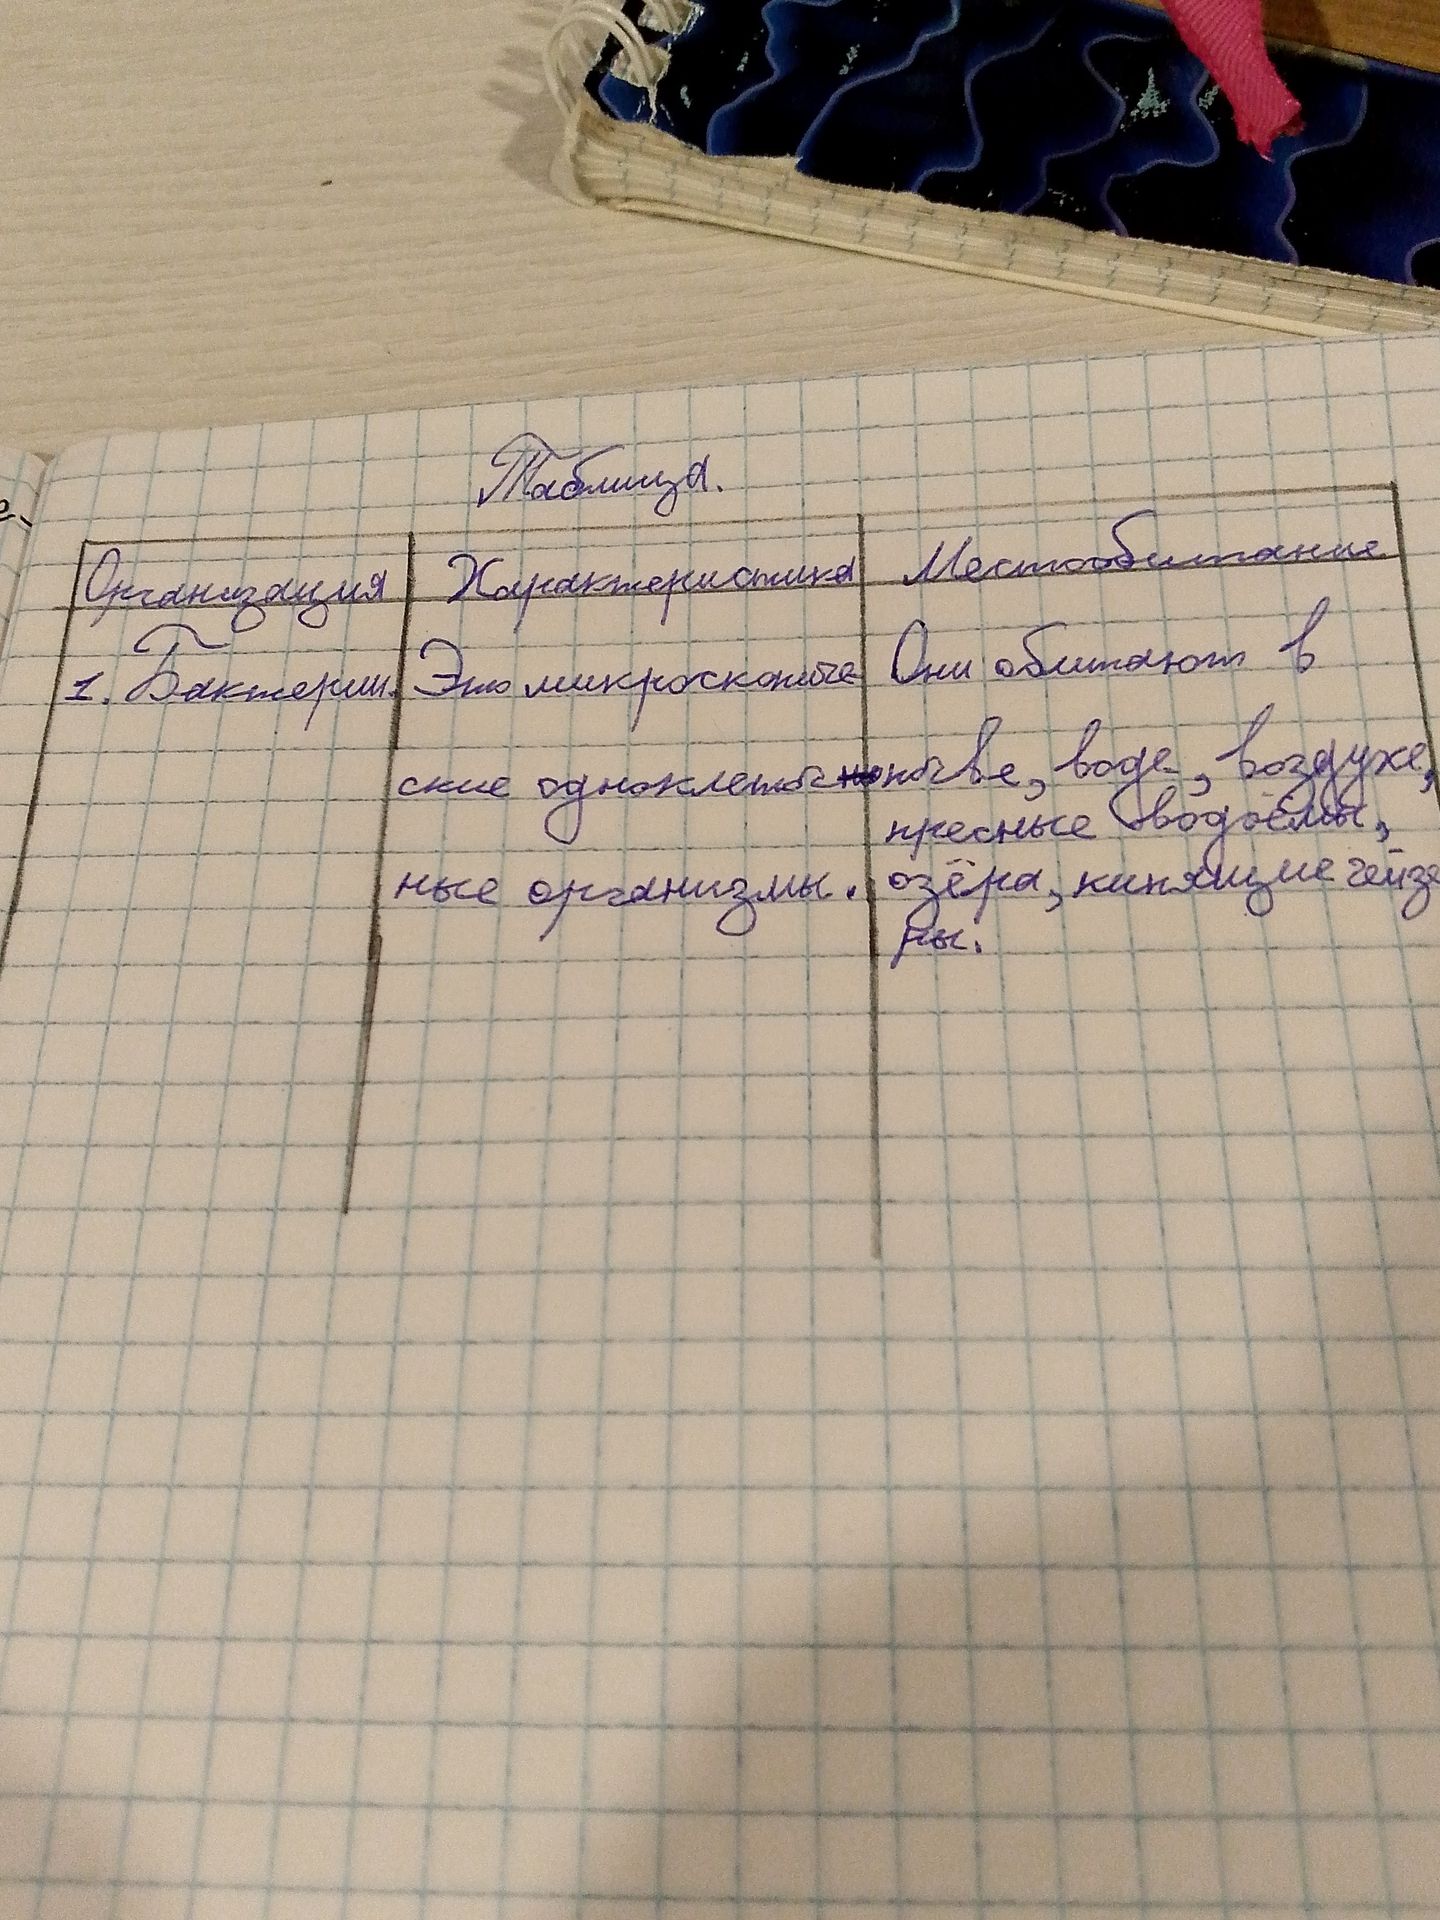 Таблица.
Организация Характеристика Местообитание
1. Бактерии. Это микроскопиче Они обитают в
ские одноклеточ почве, воде, воздухе,
пресные водоёмы,
ные организмы. озёра, кипящие гейзе
ры.